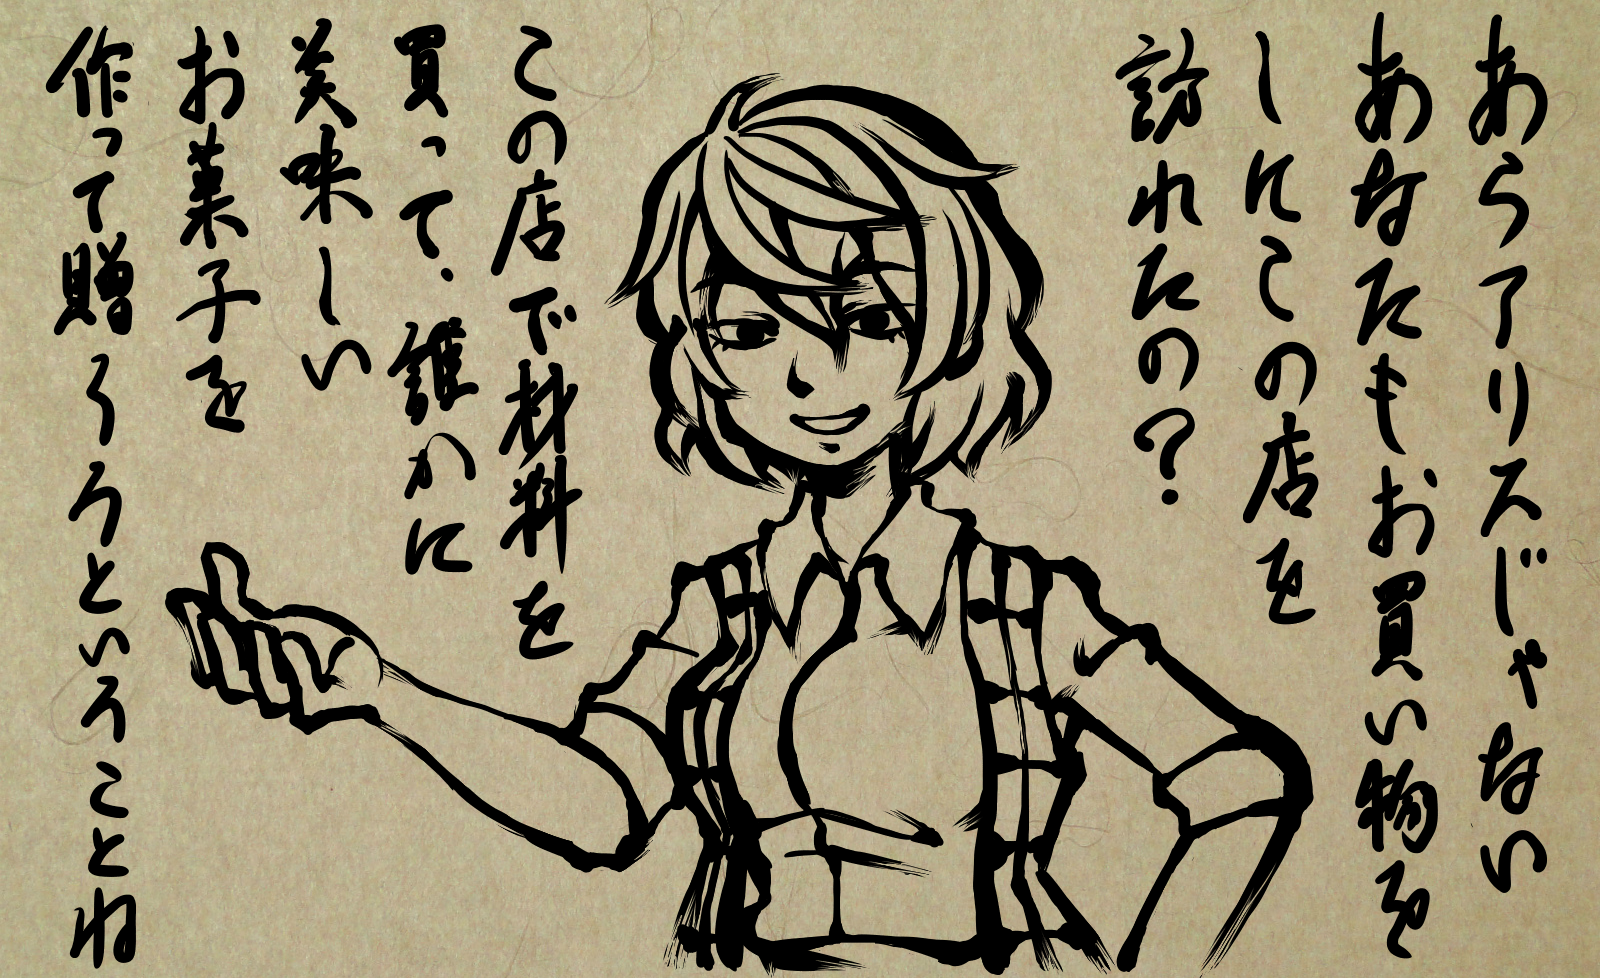 あらアリスじゃない
あなたもお買い物を
しにこの店を
訪れたの？
この店で材料を
買って、誰かに
美味しい
お菓子を
作って贈ろうということね